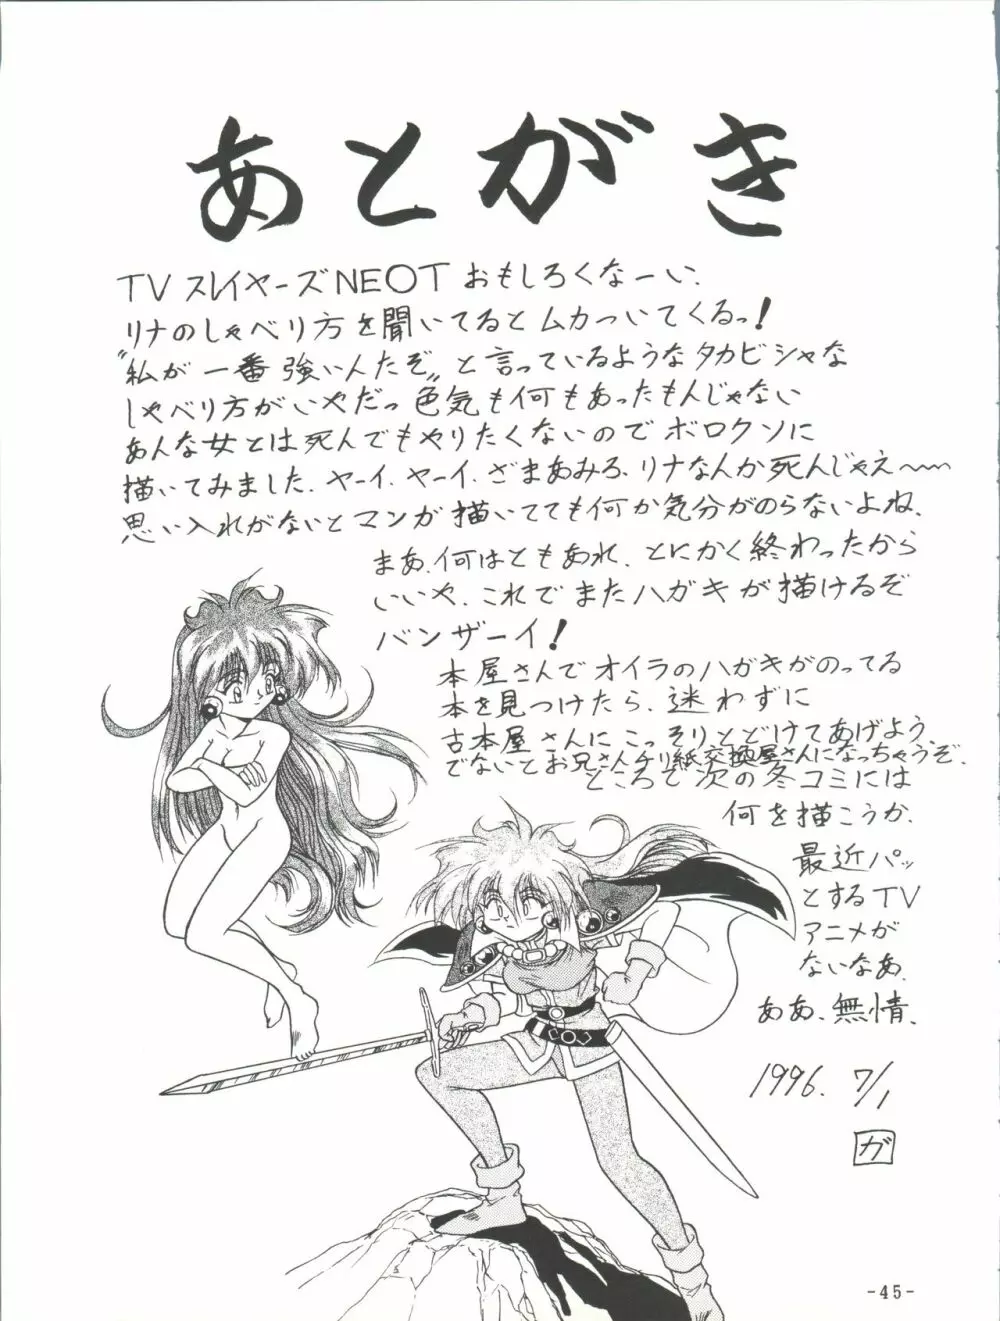 あとがき
TV スレイヤーズNEOT おもしろくなーい、
リナのしゃべり方を聞いてるとムカついてくるっ!
"私が一番強い人だぞ"と言っているようなタカビシャな
しゃべり方がいやだっ 色気も何もあったもんじゃない
あんな女とは死んでもやりたくないのでボロクソに
描いてみました、ヤーイ、ヤーイ、ざまあみろ、リナなんか死んじゃえ〜〜
思い入れがないとマンガ描いてても何か気分がのらないよね、
まあ、何はともあれ、とにかく終わったから
いいや、これでまたハガキが描けるぞ
バンザーイ!
本屋さんでオイラのハガキがのってる
本を見つけたら、迷わずに
古本屋さんにこっそりとどけてあげよう、
でないとお兄さんチリ紙交換屋さんになっちゃうぞ、
ところで次の冬コミには
何を描こうか、
最近パッ
とするTV
アニメが
ないなあ、
ああ、無情、
1996. 7/1
ガ
-45-